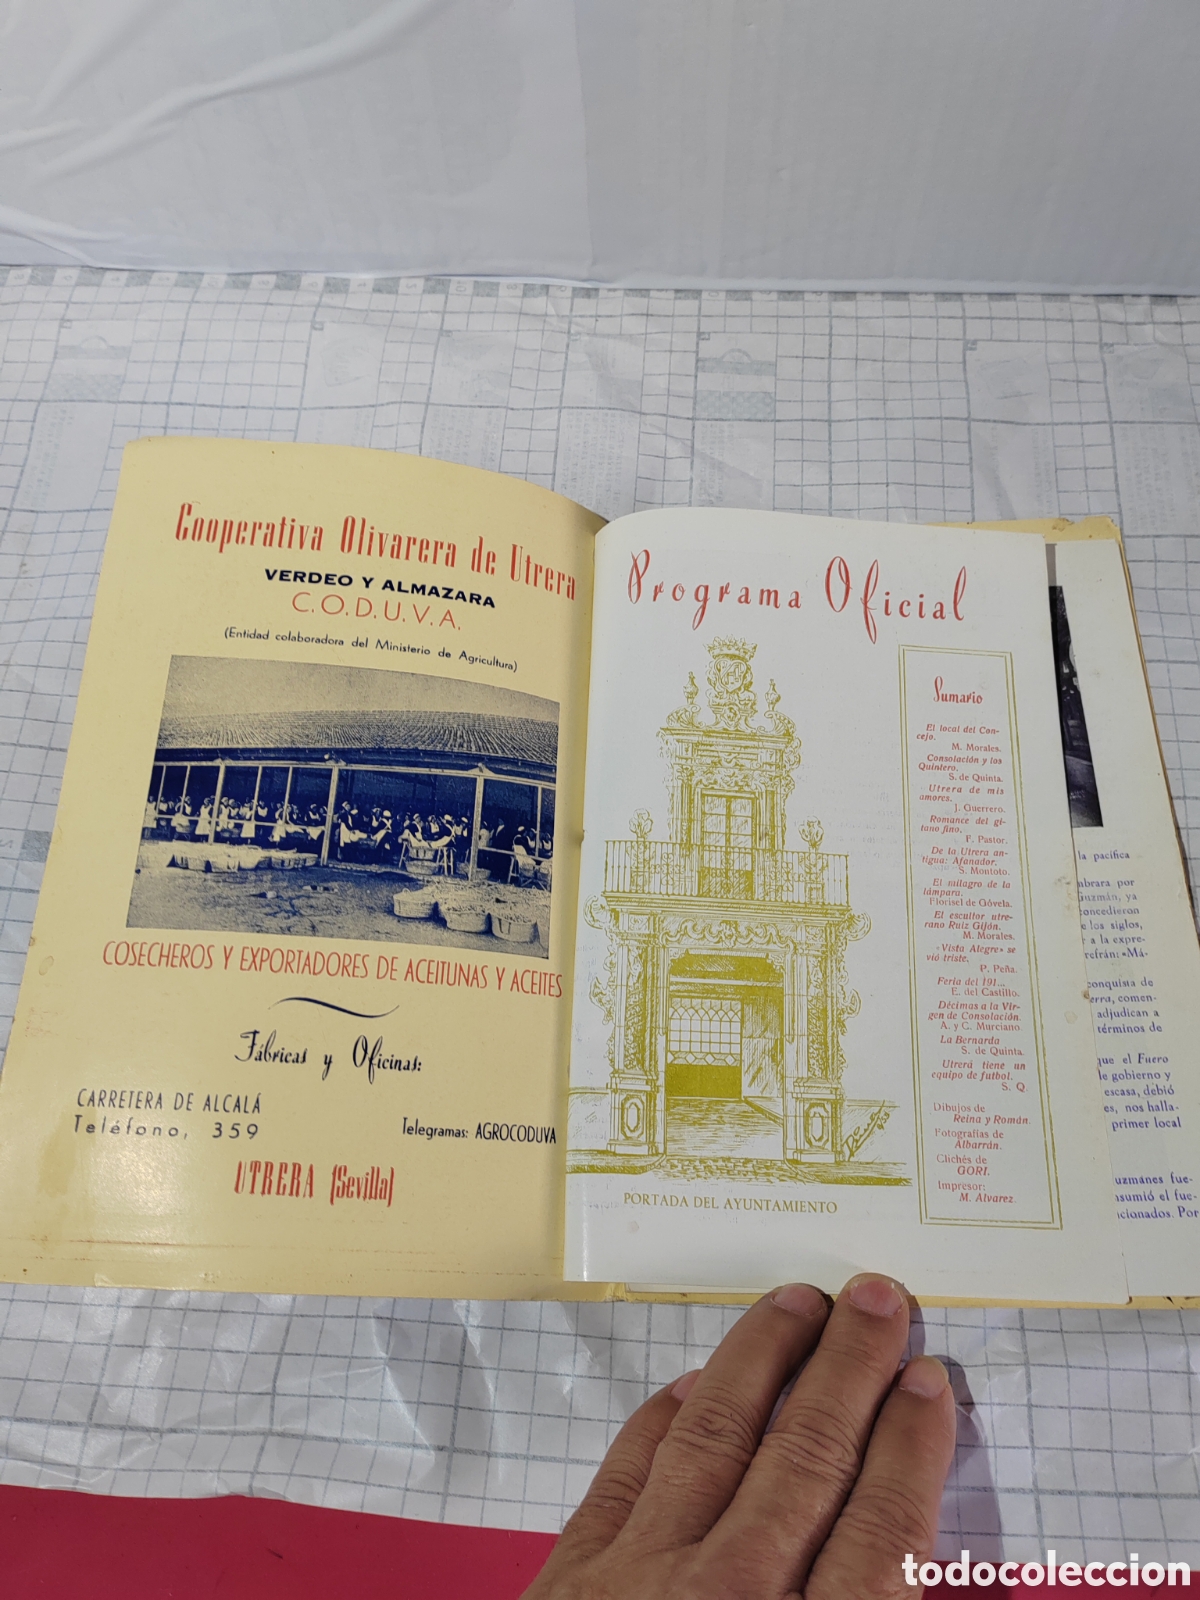 Cooperativa Olivarera de Utrera
VERDEO Y ALMAZARA
C.O.D.U.V.A.
(Entidad colaboradora del Ministerio de Agricultura)
COSECHEROS Y EXPORTADORES DE ACEITUNAS Y ACEITES
Fábricas y Oficinas:
CARRETERA DE ALCALÁ
Teléfono, 359
Telegramas: AGROCODUVA
UTRERA (Sevilla)
Programa Oficial
Sumario
El local del Con-
cejo.
M. Morales.
Consolación y los
Quintero.
S. de Quinta.
Utrera de mis
amores.
J. Guerrero.
Romance del gi-
tano fino.
F. Pastor.
De la Utrera an-
tigua: Afanador.
S. Montoto.
El milagro de la
lámpara.
Florisel de Góvela.
El escultor utre-
rano Ruiz Gijón.
M. Morales.
«Vista Alegre» se
vió triste.
P. Peña.
Feria del 191...
E. del Castillo.
Décimas a la Vir-
gen de Consolación
A. y C. Murciano.
La Bernarda
S. de Quinta.
Utrera tiene un
equipo de futbol.
S. Q.
Dibujos de
Reina y Román.
Fotografías de
Albarrán.
Clichés de
GORI.
Impresor:
M. Alvarez.
PORTADA DEL AYUNTAMIENTO
la pacífica
abrara por
Guzmán, ya
concedieron
e los siglos,
r a la expre-
refrán: «Má-
conquista de
erra, comen-
adjudican a
términos de
que el Fuero
le gobierno y
escasa, debió
es, nos halla-
primer local
uzmanes fue-
nsumió el fue-
cionados. Por
todocoleccion